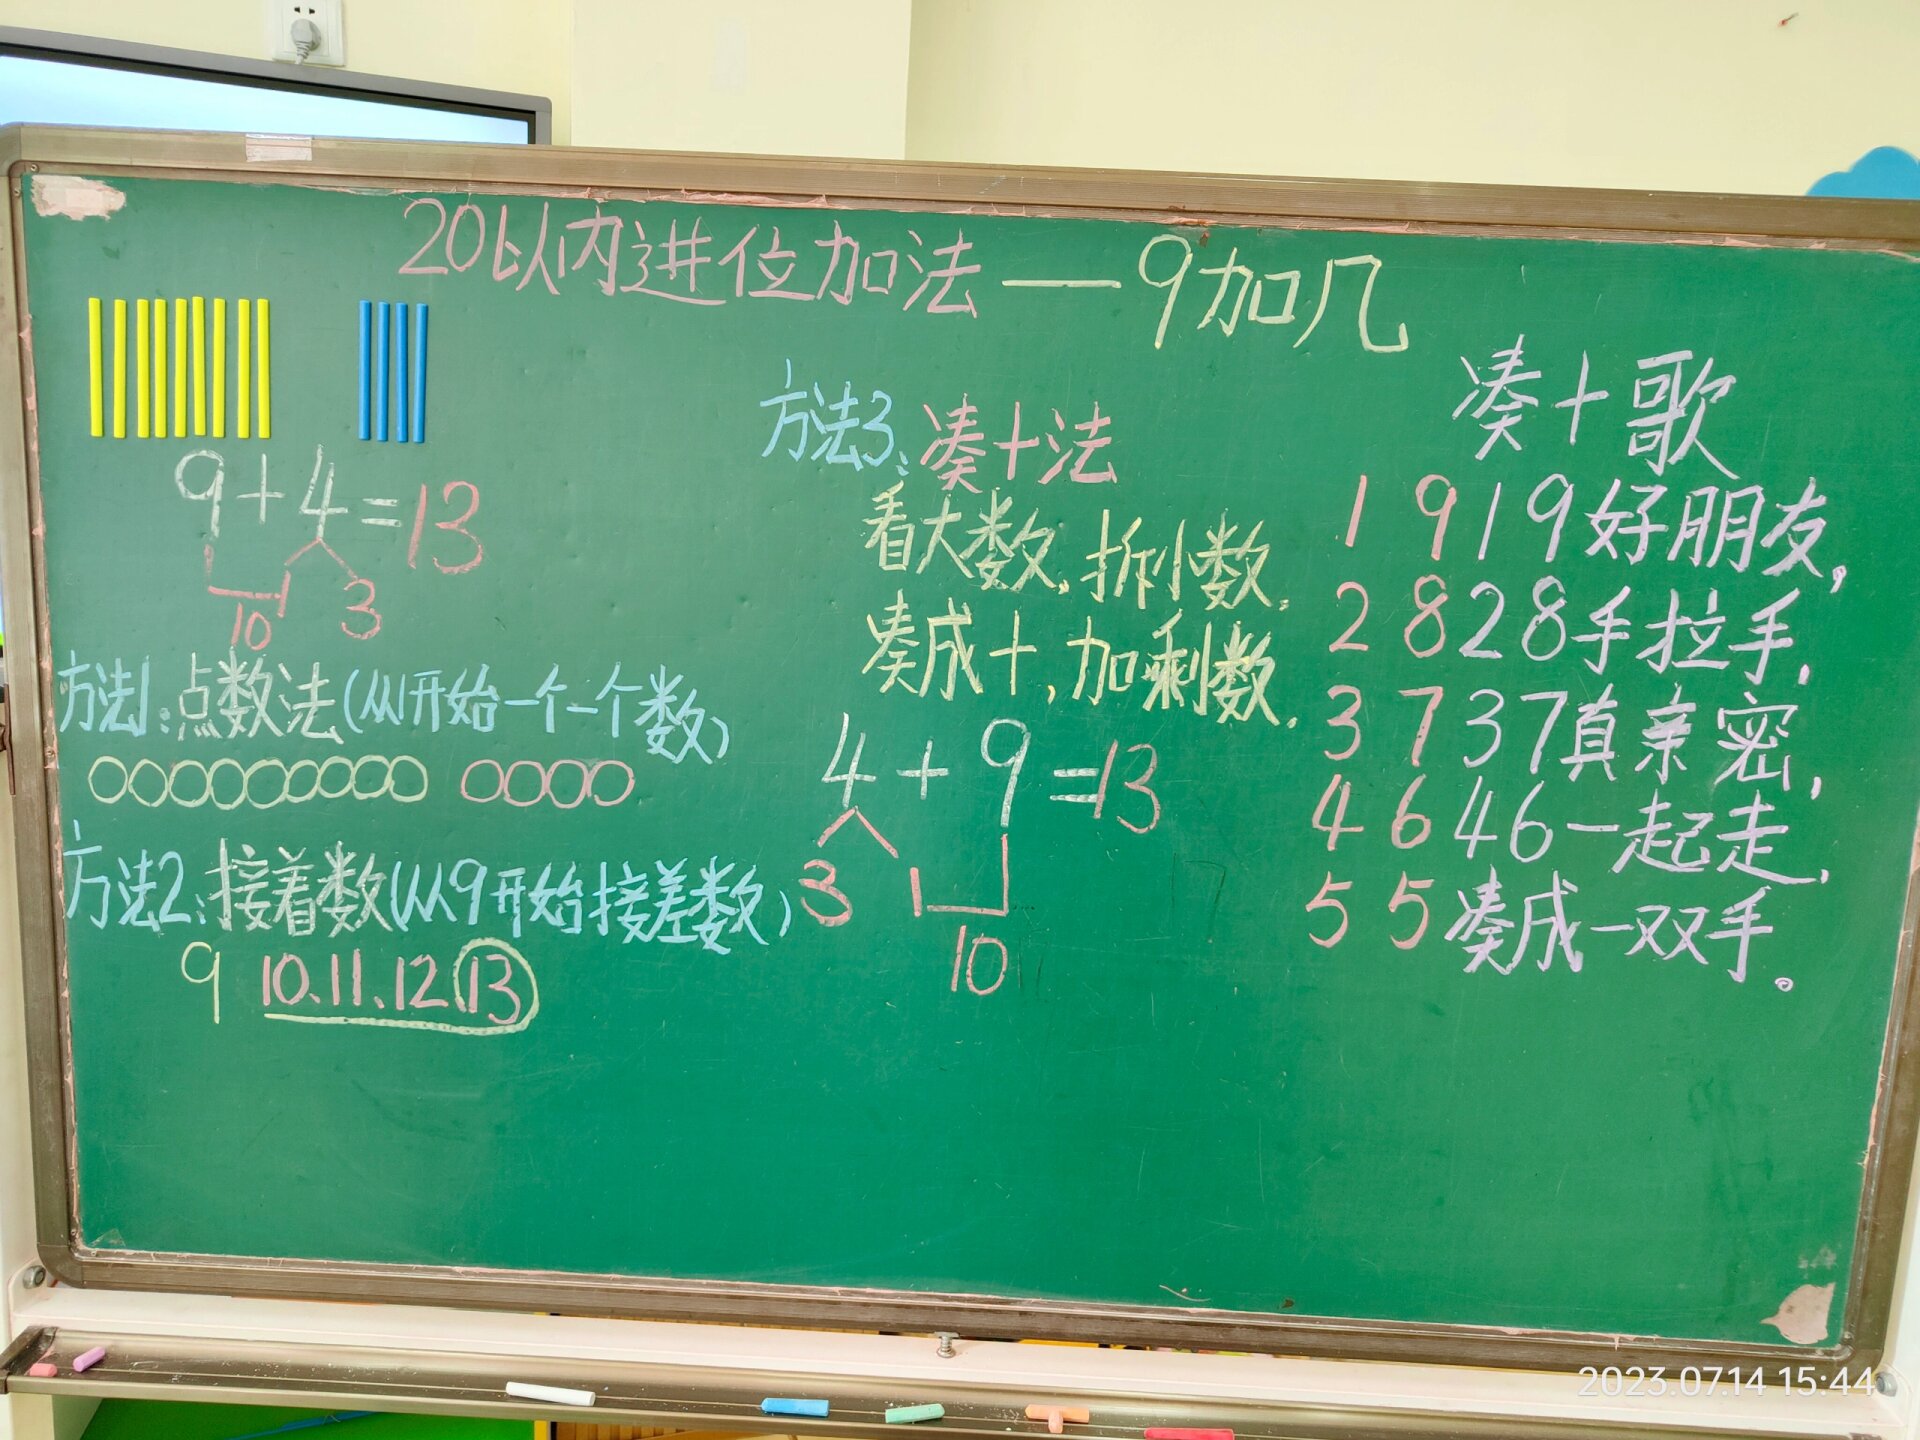 20以内进位加法—9加几
9+4=13
1 3
10
方法1:点数法(从1开始一个一个数)
方法2:接着数(从9开始接差数)
9 10、11、12、13
方法3:凑十法
看大数,拆小数,
凑成十,加剩数.
4+9=13
3 1
10
凑十歌
1 9 19好朋友,
2 8 28手拉手,
3 7 37真亲密,
4 6 46一起走,
5 5凑成一双手。
2023.07.14 15:44